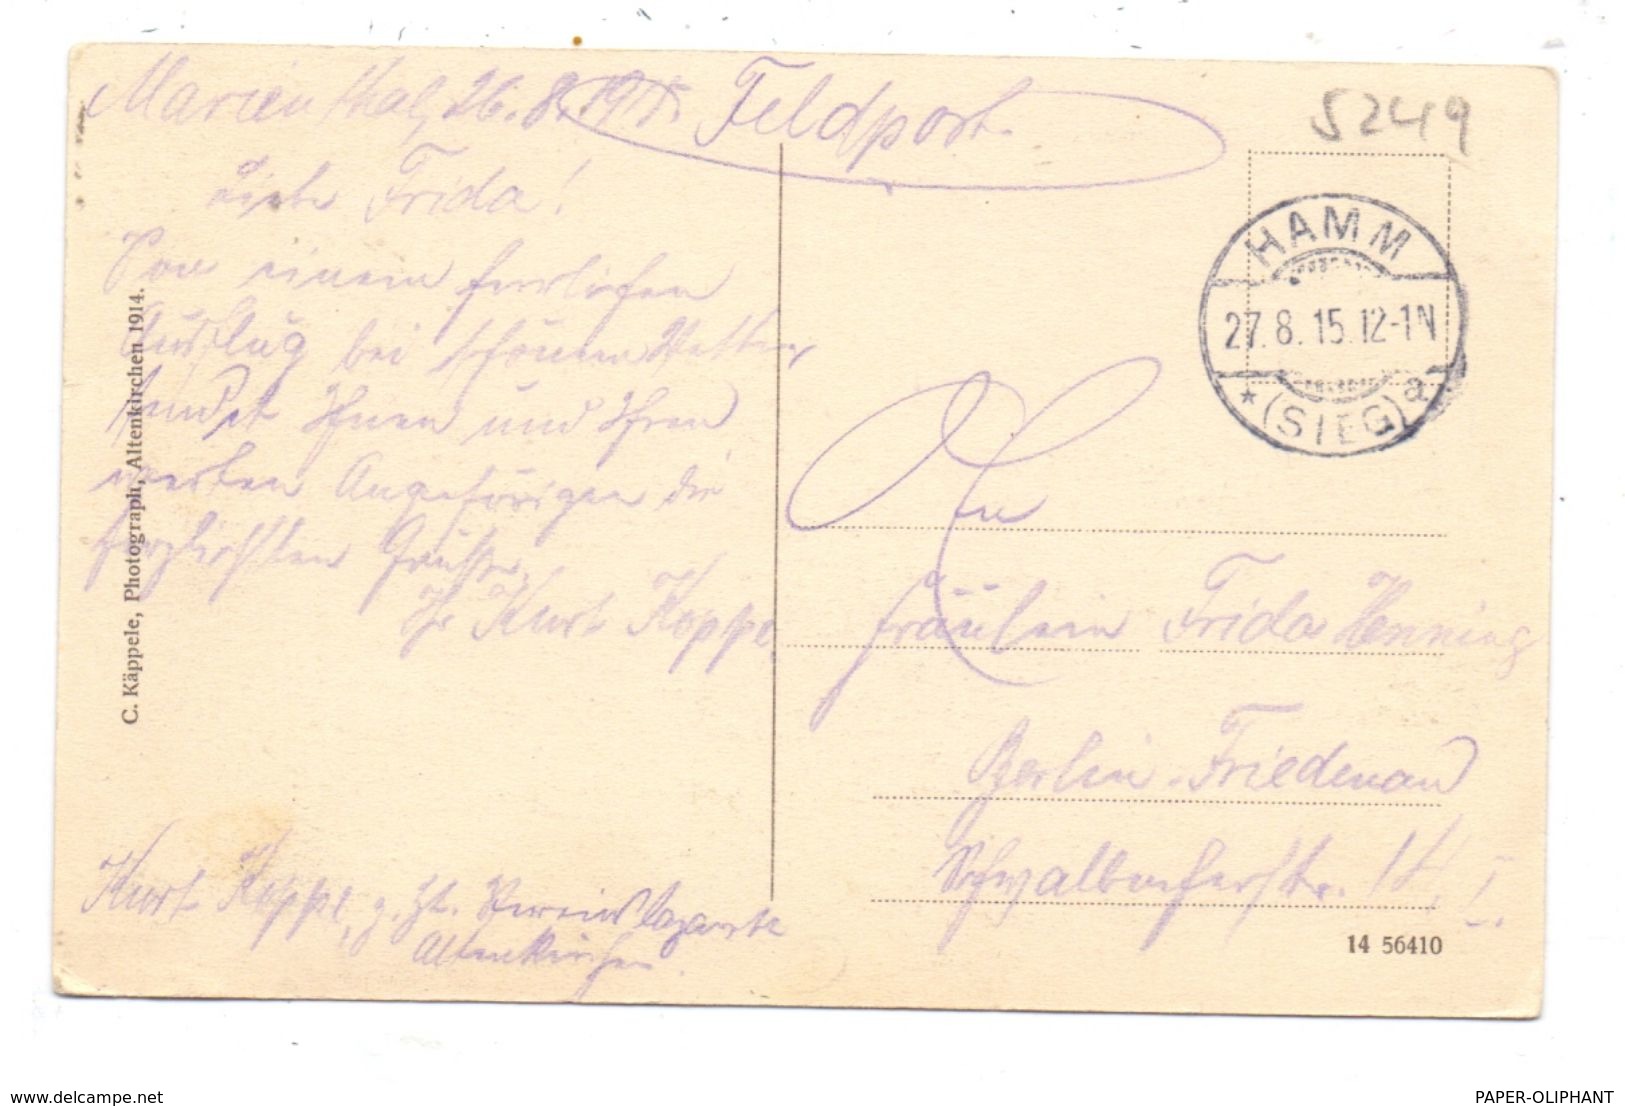 Marienthal, 26.8.1915.
Feldpost.
5249
Liebe Frida!
Von einem herrlichen
Ausflug bei schönem Wetter
sendet Ihnen und Ihren
werten Angehörigen die
herzlichsten Grüße
Ihr Kurt Koppe
Kurt Koppe, z. Zt. Vereinslazarett
Altenkirchen.
C. Käppele, Photograph, Altenkirchen 1914.
HAMM
27.8.15.12-1N
* (SIEG) a
An
Fräulein Frida Henning
Berlin-Friedenau
Schwalbacherstr. I.
14 56410
delcampe.net
PAPER-OLIPHANT